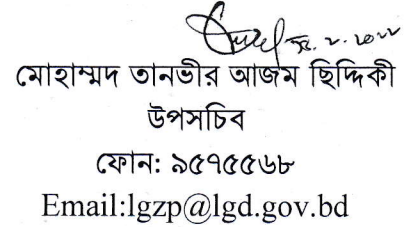 মোহাম্মদ তানভীর আজম ছিদ্দিকী
উপসচিব
ফোন: ৯৫৭৫৫৬৮
Email:lgzp@lgd.gov.bd